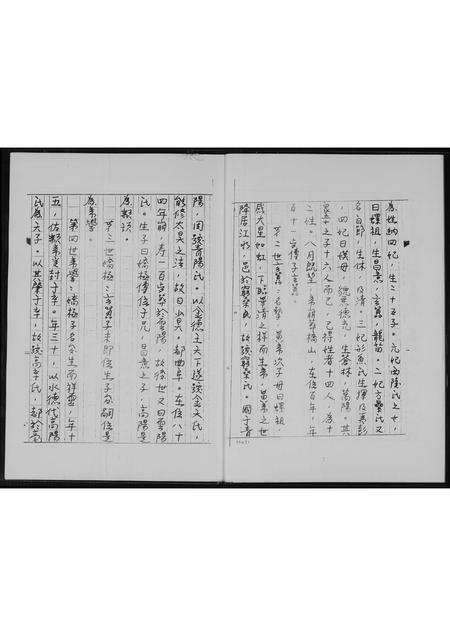 為姓納四妃，生二十五子。元妃西陵氏之女，
曰嫘祖，生昌意，玄囂，龍苗。二妃方雷氏又
名女節，生休，及清。三妃彤魚氏生揮及夷彭
，四妃曰嫫母，貌惡德充，生蒼林，禺陽。其
異生之子十六人而已，已得姓者十四人，為十
二性。八月既望，帝崩葬橋山，在位百年，年
百十一定傳子玄囂。
第二世玄囂：名摯，黃帝次子母曰嫘祖，
感大星如虹，下臨華渚之祥而生帝，黃帝之世
降居江水，邑於窮桑氏，故號窮桑氏。國于青
陽，因號青陽氏。以金德王天下遂號金天氏，
能修太昊之法，故曰少昊。都曲阜。在位八十
四年崩，壽一百定葬於雲陽，故後世又曰雲陽
氏。生子曰僑極傳位于兄，昌意之子，高陽是
為顓頊。
第三世僑極：玄囂子未即位生子名嗣位是
為帝嚳。
第四世帝嚳：僑極子名夋生而祥靈，年十
五，佐顓帝受封于辛。年三十，以水德代高陽
氏為天子。以其肇于辛，故號高辛氏，都於亳